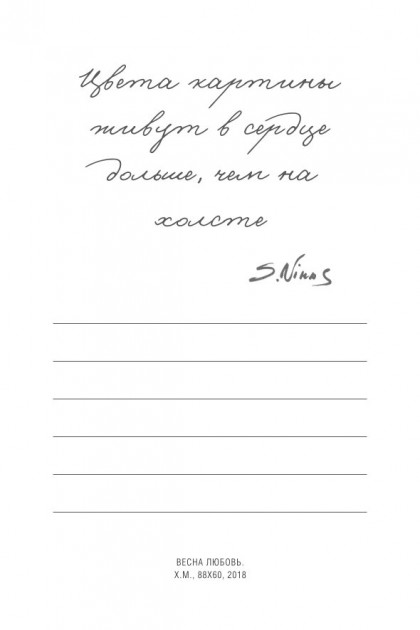 Цвета картины
живут в сердце
дольше, чем на
холсте
S.Ninas
ВЕСНА ЛЮБОВЬ.
Х.М., 88X60, 2018